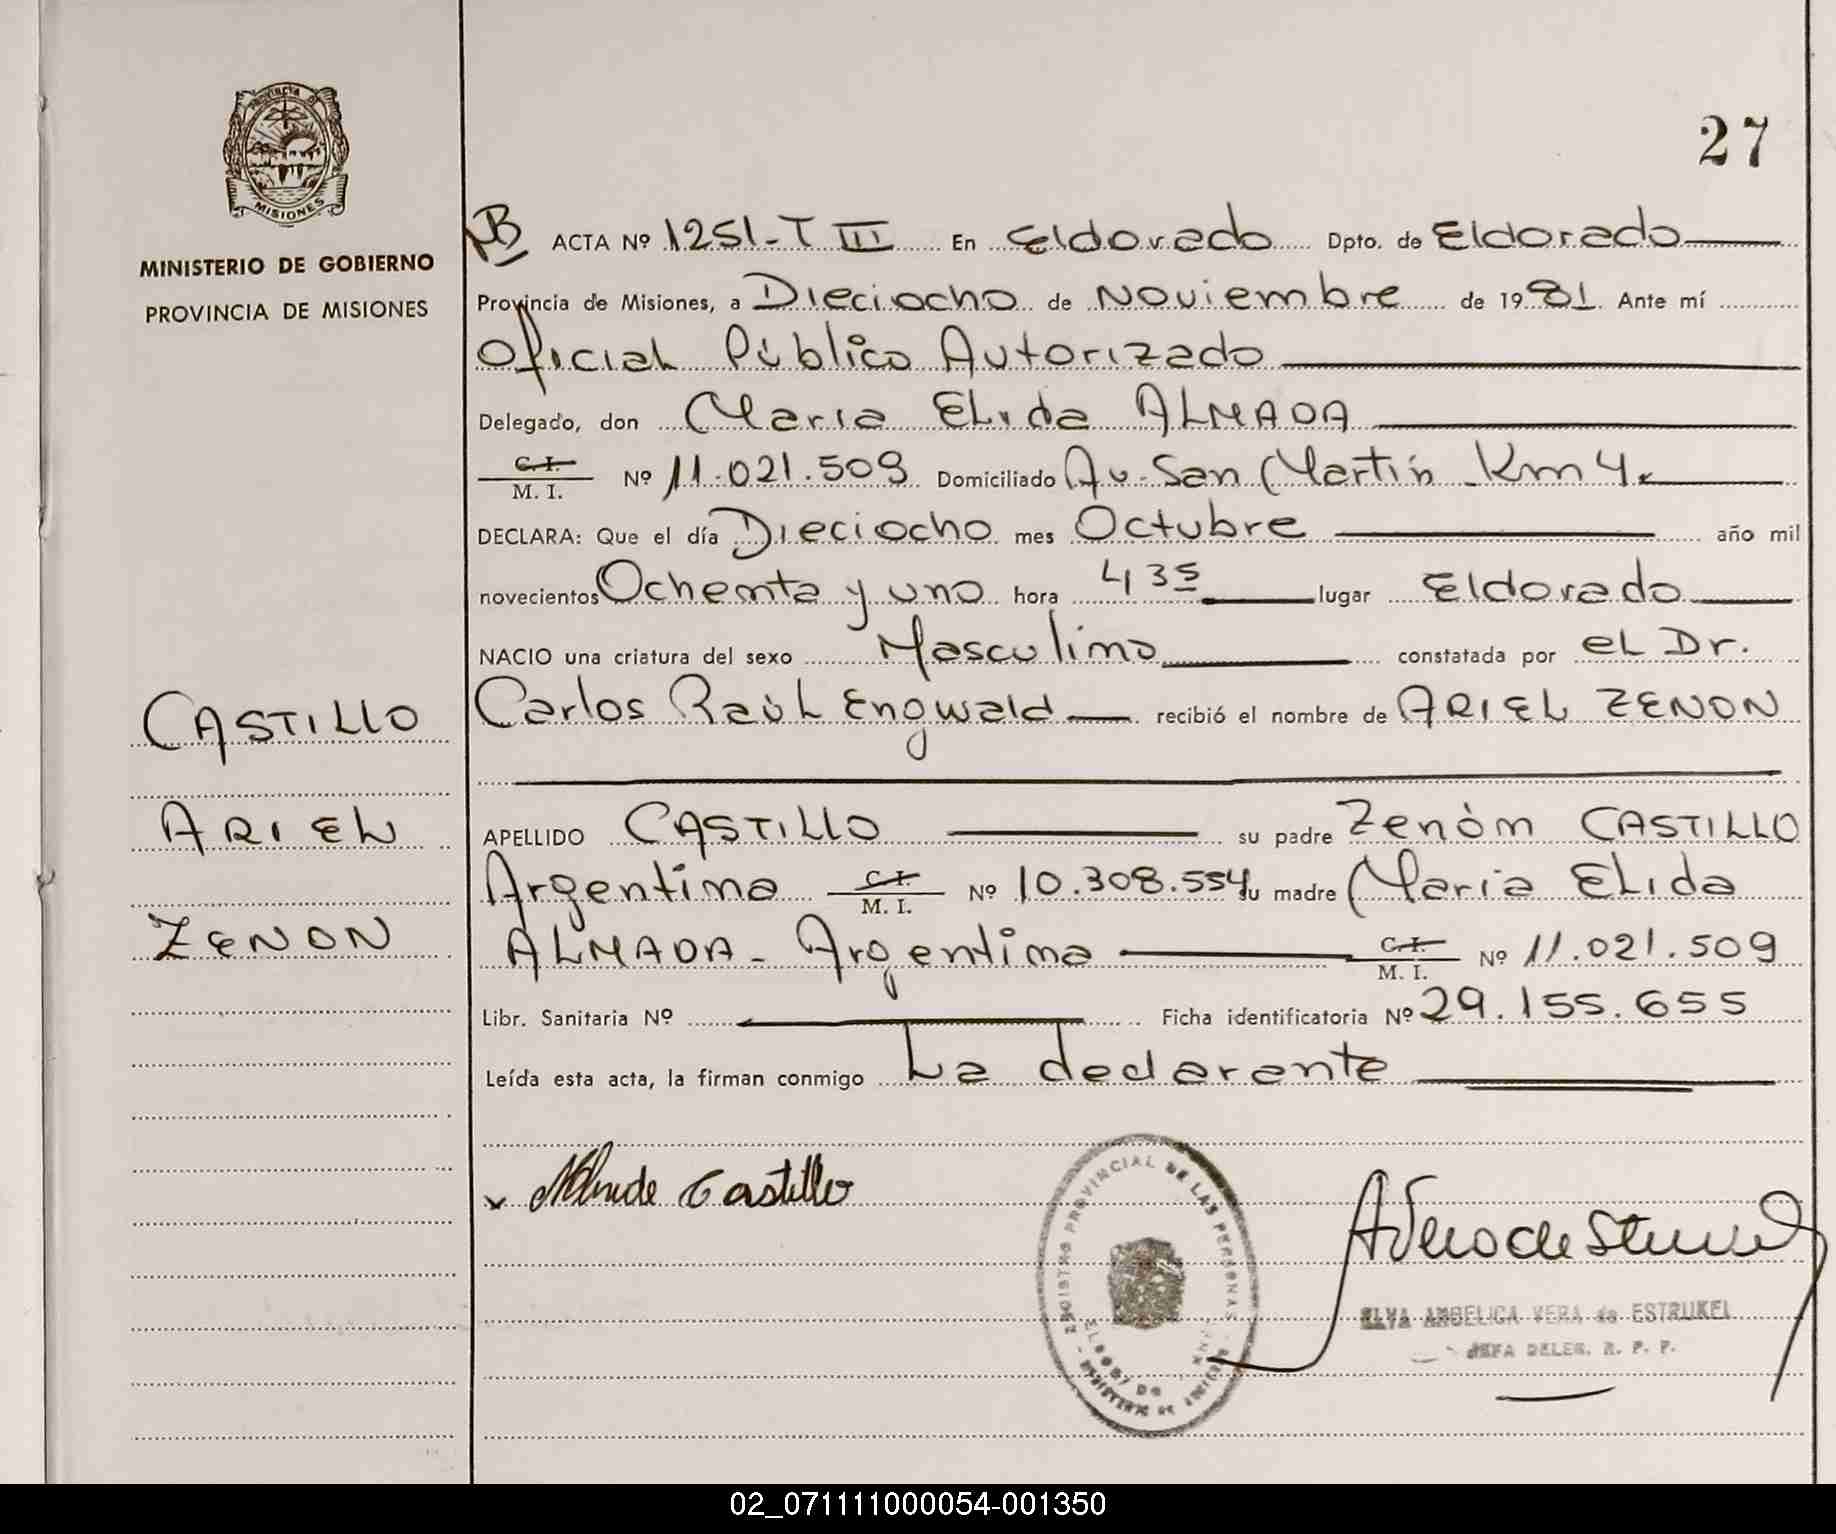 27
PROVINCIA DE
MISIONES
MINISTERIO DE GOBIERNO
PROVINCIA DE MISIONES
ACTA Nº 1251-T III En Eldorado Dpto. de Eldorado
Provincia de Misiones, a Dieciocho de Noviembre de 1981 Ante mí
Oficial Público Autorizado
Delegado, don Maria Elida ALMADA
C.I.
M. I. Nº 11.021.509 Domiciliado Av. San Martín Km 4
DECLARA: Que el día Dieciocho mes Octubre año mil
novecientos Ochenta y uno hora 4 35 lugar Eldorado
NACIO una criatura del sexo Masculino constatada por el Dr.
Carlos Raúl Engwald recibió el nombre de ARIEL ZENON
CASTILLO
ARIEL
ZENON
APELLIDO CASTILLO su padre Zenón CASTILLO
Argentino C.I.
M. I. Nº 10.308.554 su madre Maria Elida
ALMADA - Argentina C.I.
M. I. Nº 11.021.509
Libr. Sanitaria Nº Ficha identificatoria Nº 29.155.655
Leída esta acta, la firman conmigo La declarante
Castillo
REGISTRO PROVINCIAL DE LAS PERSONAS
ELDORADO
ELVA ANGELICA VERA de ESTRUKEL
JEFA DELEG. R. P. P.
02_071111000054-001350